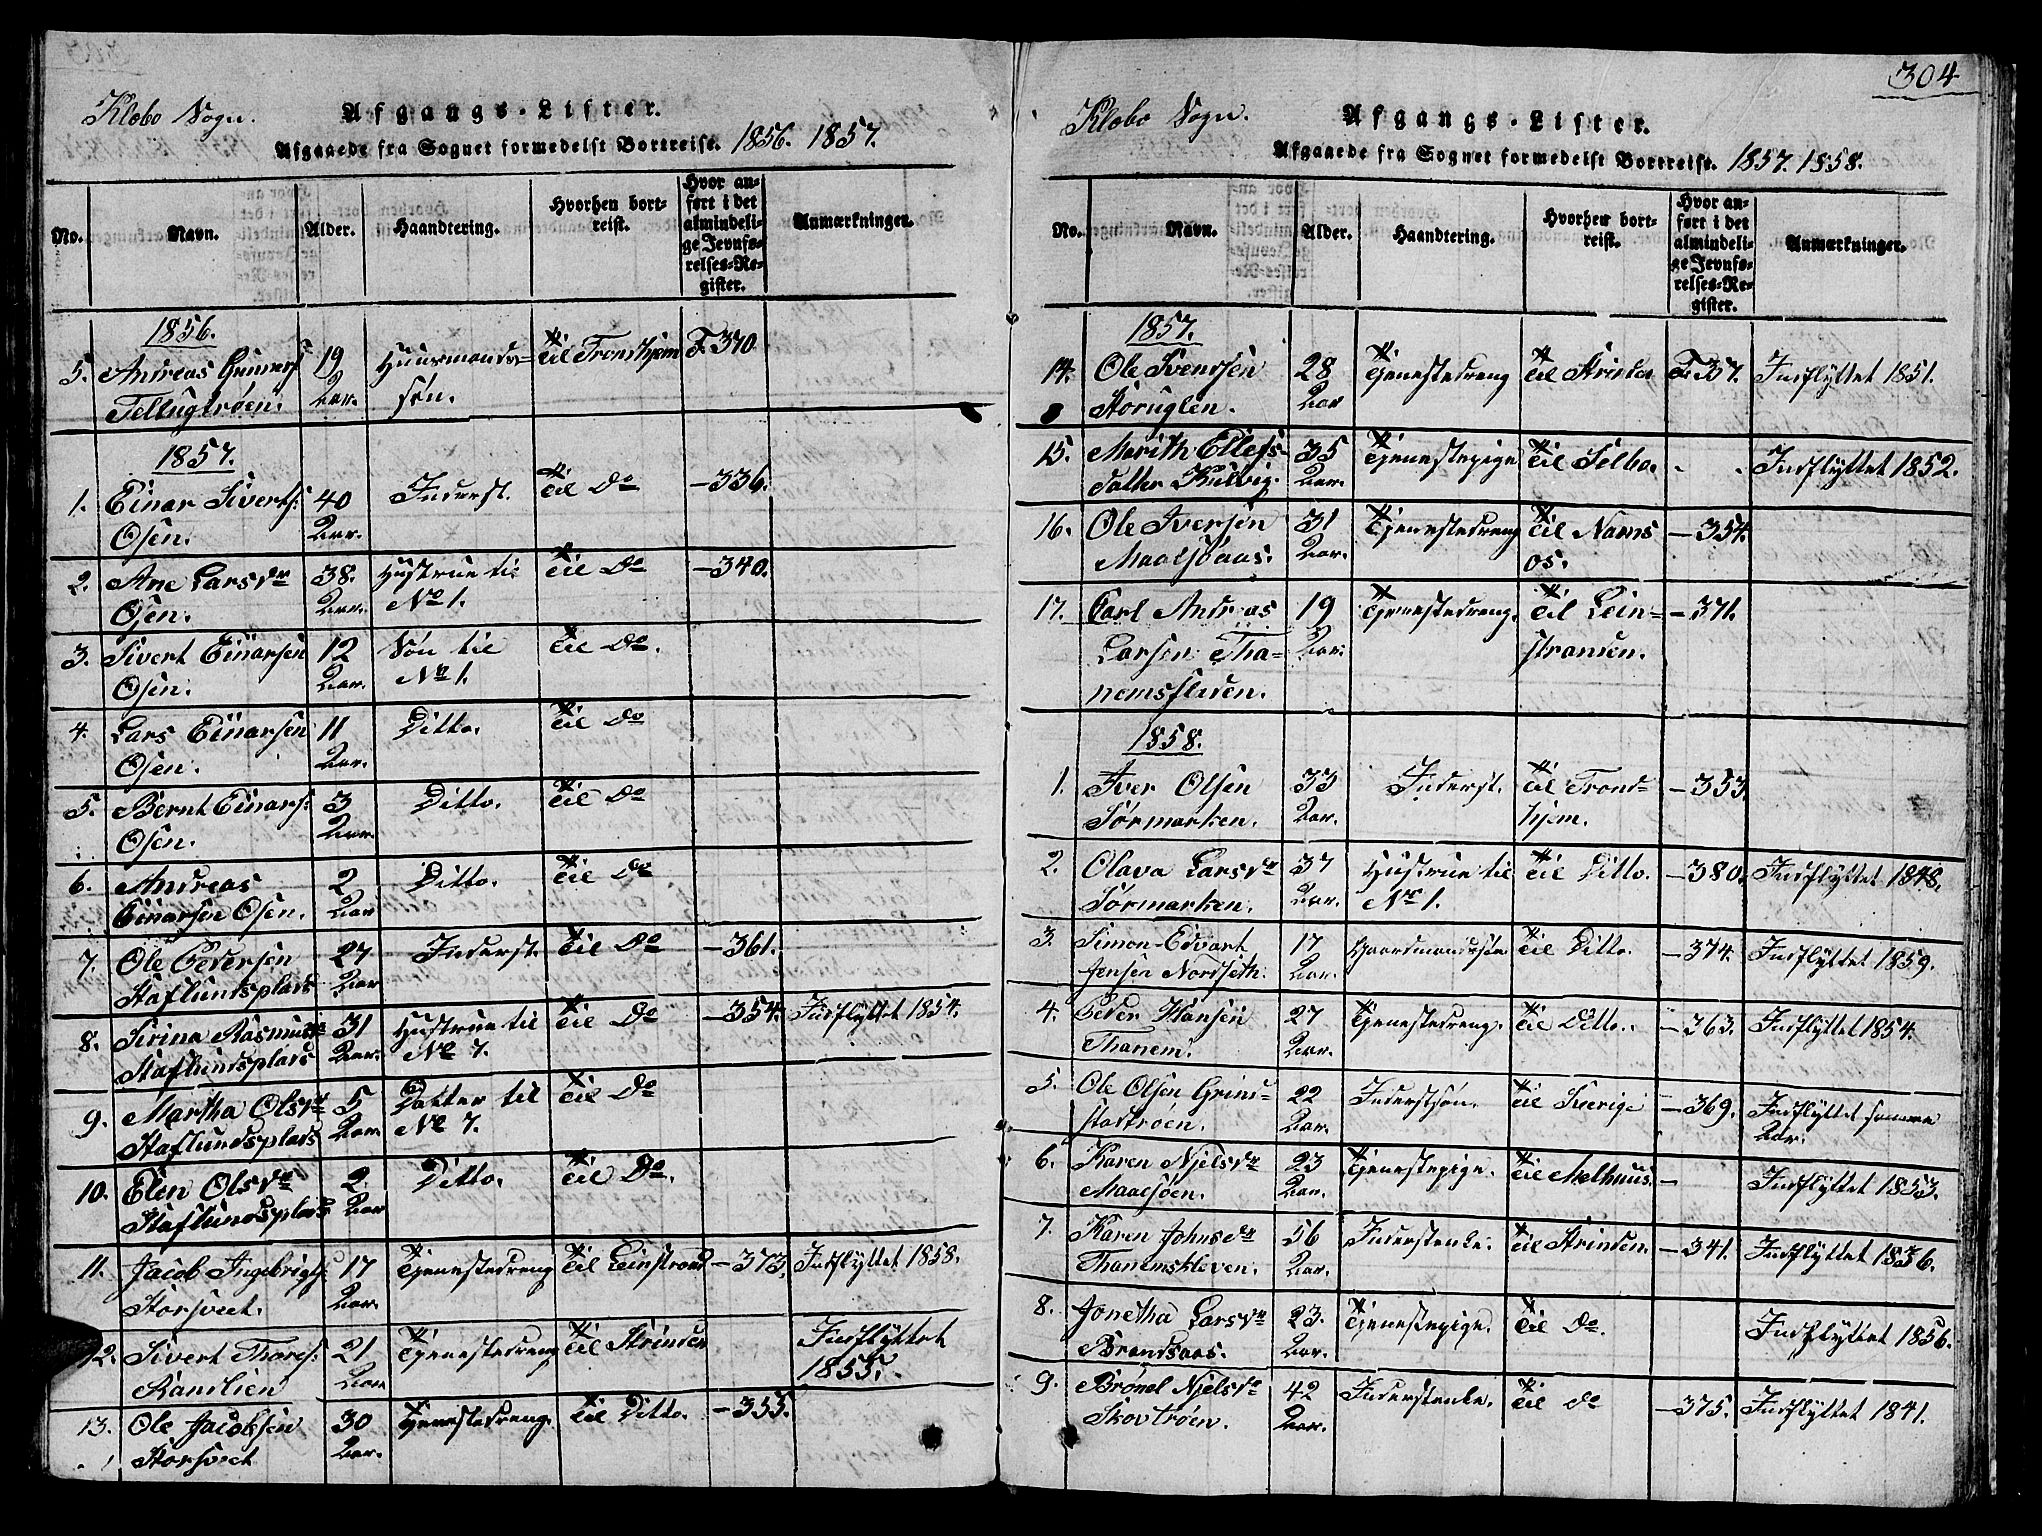 Klæbo Sogn.
Afgangs-Lister.
Afgaaede fra Sognet formedelst Bortreise. 1856. 1857.
No. Navn. Alder. Haandtering. Hvorhen bortreist. Hvor anført i det almindelige Jevnførelses-Register. Anmærkninger.
1856.
5. Andreas Gunners Tellugtrøen. 19 Aar. Huusmandssøn. Til Trondhjem F. 370.
1857.
1. Einar Siverts: Osen. 40 Aar. Inderst. Til Do —336.
2. Ane Larsdr Osen. 38. Aar. Hustrue til No 1. Til Do —340.
3. Sivert Einarsen Osen. 12 Aar. Søn til No 1. Til Do.
4. Lars Einarsen Osen. 11 Aar. Ditto. Til Do
5. Bernt Einars: Osen. 3 Aar. Ditto. Til Do
6. Andreas Einarsen Osen. 2 Aar Ditto. Til Do
7. Ole Pedersen Staflundsplads 27 Aar Inderst. Til Do —361.
8. Sirina Rasmusdr Staflundsplads 31 Aar. Hustrue til No 7. Til Do —354. Indflyttet 1854.
9. Martha Olsdr Staflundsplads 5 Aar Datter til No 7. Til Do
10. Elen Olsdr Staflundsplads 2 Aar Ditto. Til Do.
11. Jacob Ingebrigts Storsveet. 17 Aar. Tjenestedreng Til Leinstrand —373. Indflyttet 1858.
12. Sivert Thores: Ramlien 21 Aar Tjenestedreng Til Strinden Indflyttet 1855.
13. Ole Jacobsen Storsveet 30 Aar. Tjenestedreng. Til Ditto. —355.
304
Klæbo Sogn.
Afgangs-Lister.
Afgaaede fra Sognet formedelst Bortreise. 1857. 1858.
No. Navn. Alder. Haandtering. Hvorhen bortreist. Hvor anført i det almindelige Jevnførelses-Register. Anmærkninger.
1857.
14. Ole Svendsen Storuglen. 28 Aar Tjenestedreng Til Strinden F. 37. Indflyttet 1851.
15. Marith Ellefsdatter Kulvig. 35 Aar. Tjenestepige Til Selbo. - - Indflyttet 1852.
16. Ole Iversen Maalsöaas. 31 Aar. Tjenestedreng Til Namsos. —354.
17. Carl Andreas Larsen Thanemsfladen. 19 Aar. Tjenestedreng. Til Leinstranden. —371.
1858.
1. Iver Olsen Sørmarken. 33 Aar. Inderst. Til Trondhjem. —353.
2. Olava Larsdr Sørmarken. 37 Aar. Hustrue til No 1. Til Ditto. —380. Indflyttet 1848.
3. Simon Edvart Jensen Nordseth. 17 Aar. Gaardmandssøn Til Ditto. —374. Indflyttet 1859.
4. Peder Hansen Thanem. 27 Aar. Tjenestedreng. Til Ditto. —363. Indflyttet 1854.
5. Ole Olsen Grindstadtrøen. 22 Aar. Inderstsøn. Til Sverige —369. Indflyttet samme Aar.
6. Karen Njelsdr Maalsøen. 23 Aar. Tjenestepige. Til Melhuus. — Indflyttet 1853.
7. Karen Johnsdr Thanemskleven. 56 Aar. Inderstenke. Til Strinden. —341. Indflyttet 1836.
8. Jonetha Larsdr Brandsaas. 23. Aar. Tjenestepige. Til Do. Indflyttet 1856.
9. Brønel Njelsdr Skovtrøen. 42 Aar. Inderstenke Til Do —375. Indflyttet 1841.